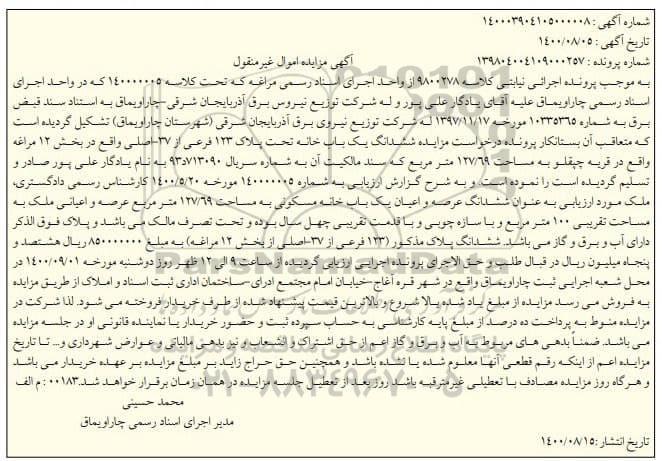 شماره آگهی : ۱۴۰۰۰۳۹۰۴۱۰۵۰۰۰۰۰۸
تاریخ آگهی : ۱۴۰۰/۰۸/۰۵
شماره پرونده : ۱۳۹۸۰۴۰۰۴۱۰۹۰۰۰۲۵۷
آگهی مزایده اموال غیرمنقول
به موجب پرونده اجرائی نیابتی کلاسه ۹۸۰۰۲۷۸ از واحد اجرای اسناد رسمی مراغه که تحت کلاسه ۱۴۰۰۰۰۰۵ که در واحد اجرای
اسناد رسمی چاراویماق علیه آقای یادگار علی پور و له شرکت توزیع نیروس برق آذربایجان شرقی-چاراویماق به استناد سند قبض
برق به شماره ۱۰۳۳۵۳۶۵ مورخه ۱۳۹۷/۱۱/۱۷ له شرکت توزیع نیروی برق آذربایجان شرقی (شهرستان چاراویماق) تشکیل گردیده است
که متعاقب آن بستانکار پرونده درخواست مزایده ششدانگ یک باب خانه تحت پلاک ۱۲۳ فرعی از ۳۷-اصلی واقع در بخش ۱۲ مراغه
واقع در قریه چپقلو به مساحت ۱۲۷/۶۹ متر مربع که سند مالکیت آن به شماره سریال ۹۳د۷۱۳۰۹۰ به نام یادگار علی پور صادر و
تسلیم گردیده است را نموده است. و به شرح گزارش ارزیابی به شماره ۱۴۰۰۰۰۰۵ مورخه ۱۴۰۰/۵/۲۰ کارشناس رسمی دادگستری،
ملک مورد ارزیابی به عنوان ششدانگ عرصه و اعیان یک باب خانه مسکونی به مساحت ۱۲۷/۶۹ متر مربع عرصه و اعیانی ملک به
مساحت تقریبی ۱۰۰ متر مربع و با سازه چوبی و با قدمت تقریبی چهل سال بوده و تحت تصرف مالک می باشد و پلاک فوق الذکر
دارای آب و برق و گاز می باشد. ششدانگ پلاک مذکور (۱۲۳ فرعی از ۳۷-اصلی از بخش ۱۲ مراغه) به مبلغ ۸۵۰۰۰۰۰۰۰ ریال هشتصد و
پنجاه میلیون ریال در قبال طلب و حق الاجرای پرونده اجرایی ارزیابی گردیده از ساعت ۹ الی ۱۲ ظهر روز دوشنبه مورخه ۱۴۰۰/۰۹/۰۱ در
محل شعبه اجرایی ثبت چاراویماق واقع در شهر قره آغاج-خیابان امام مجتمع ادرای-ساختمان اداری ثبت اسناد و املاک از طریق مزایده
به فروش می رسد مزایده از مبلغ یاد شده بالا شروع و بالاترین قیمت پیشنهاد شده از طرف خریدار فروخته می شود. لذا شرکت در
مزایده منوط به پرداخت ده درصد از مبلغ پایه کارشناسی به حساب سپرده ثبت و حضور خریدار یا نماینده قانونی او در جلسه مزایده
می باشد. ضمناً بدهی های مربوط به آب و برق و گاز اعم از حق اشتراک و انشعاب و نیز بدهی مالیاتی و عوارض شهرداری و... تا تاریخ
مزایده اعم از اینکه رقم قطعی آنها معلوم شده یا نشده باشد و همچنین حق حراج زاید بر مبلغ مزایده بر عهده خریدار می باشد
و هرگاه روز مزایده مصادف با تعطیلی غیرمترقبه باشد روز بعد از تعطیل جلسه مزایده در همان زمان برقرار خواهد شد.۰۰۱۸۳: م الف
محمد حسینی
مدیر اجرای اسناد رسمی چاراویماق
تاریخ انتشار: ۱۴۰۰/۰۸/۱۵
ParsNamadData
۰۲۱-۸۸۳۴۹۶۷۰-۵